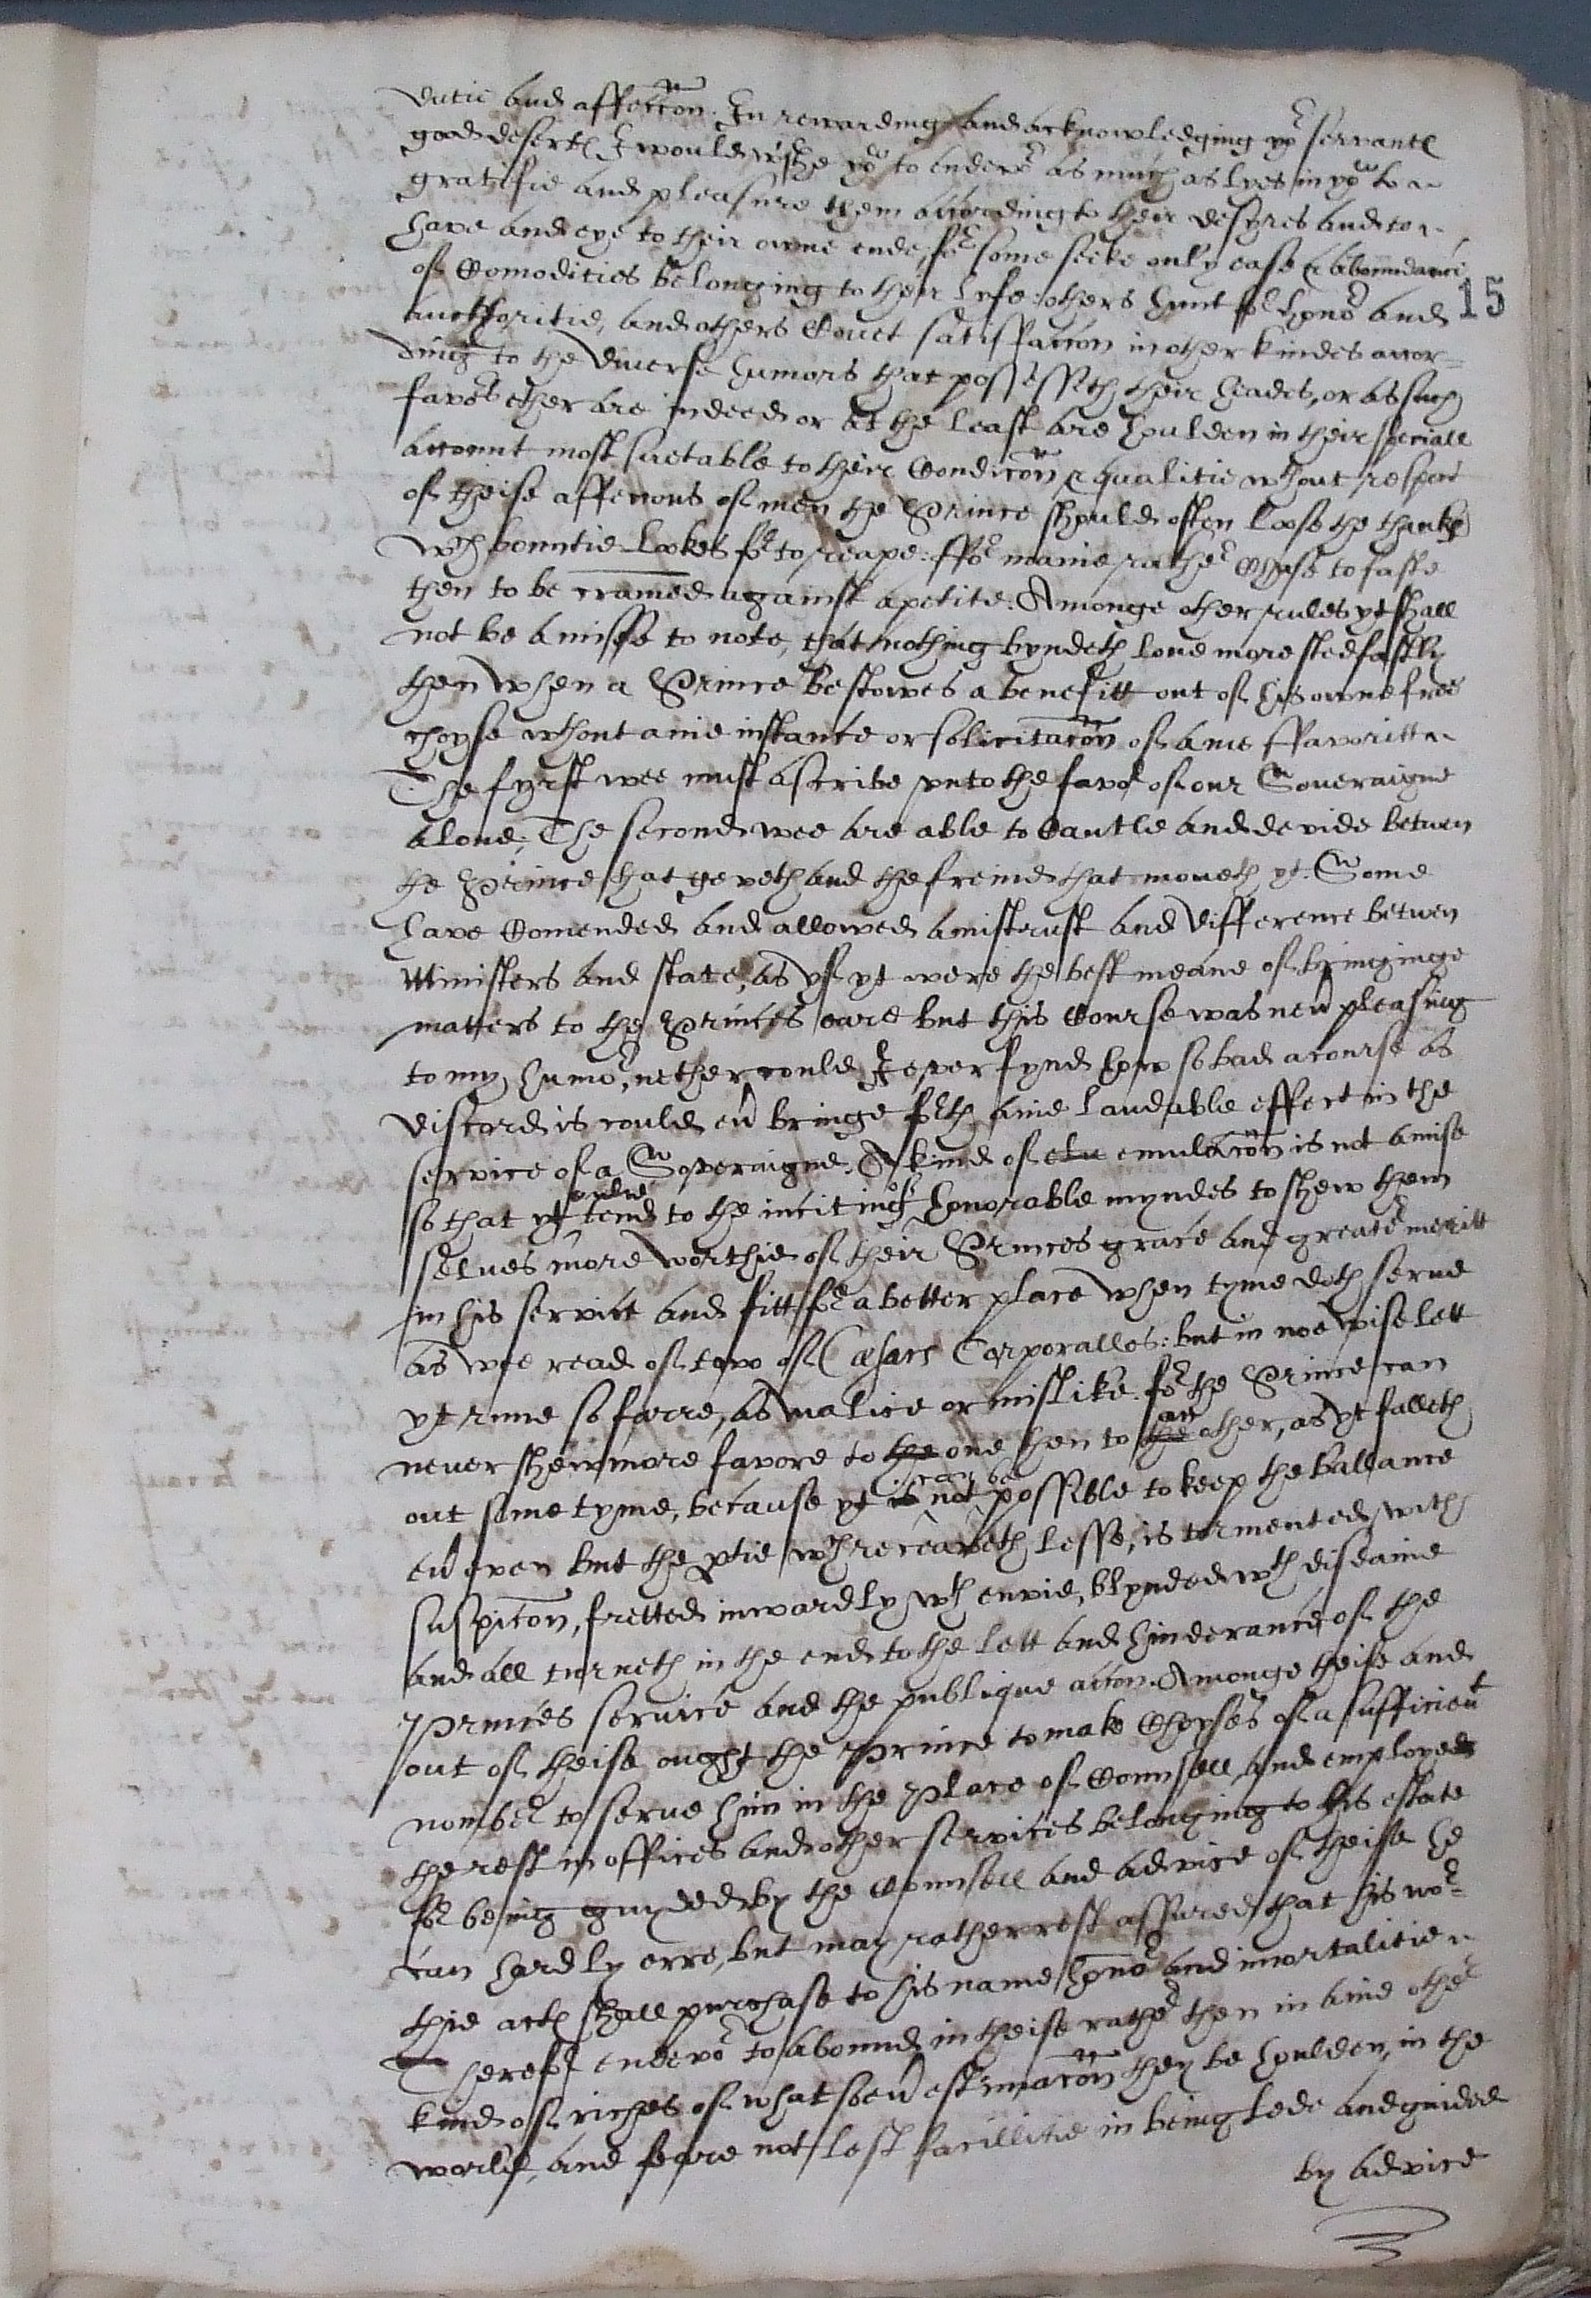 dutie and affeccõn. In rewarding and acknowledging yor servantes
good desertes I would wishe yow to endevor as much as lyes in yow to
gratifie and pleasure them according to their desyres and to
have and eye to their owne ende, for some seeke only ease & aboundance
of Comodities belonging to their lyfe: others hunt for honor and
aucthoritie, and others Covet satisffaccon in other kindes accor=
ding to the diverse humors that possesseth their heades, or as such
favors ether are indeed or at the least are houlden in their speciall
account most suetable to their Condicõn & qualitie wthout respect
of theise affeccons of men the Prince should often loose the thankes
wch bountie lookes for to reape: ffor manie rather Chuse to faste
then to be cramed against apetite. Amonge other rules yt shall
not be amisse to note, that nothing byndeth love more stedfastly
then when a Prince bestowes a benefitt out of his owne free
choyse wthout anie instance or solicitacõn of anie ffavoritte
The fyrst wee must ascribe unto the favor of our Soveraigne
alone; The second wee are able to Cantle and devide betwen
the Prince that geveth and the freind that moveth yt. Some
have Comended and allowed a mistrust and difference betwen
Ministers and state, as yf yt were the best meane of bringinge
matters to the Princes eare but this Course was nevr pleasing
to my humor, nether could I ever fynd how so bad a course as
discord is could evr bringe forth anie laudable effect in the
service of a Soveraigne. A kind of elu emulacõn is not amise
so that yt onlie tend to the inciting of honorable myndes to shew them
selves more worthie of their Princes grace and greater meritt
in his service and fitt for a better place when tyme doth serve
as wee read of two of Cæsars Corporalles: but in noe wise lett
yt runne so farre, as malice or mislike. for the Prince can
never shew more favore to the one then to the an other, as yt falleth
out some tyme, because yt is not scarce be possible to keep the ballance
evr even but the ptie wch receaveth lesse, is tormented with
suspicõn, fretted inwardly wth envie, blynded wth disdaine
and all turneth in the end to the lett and hinderance of the
Princes service and the publique accon. Amonge theise and
out of theise ought the Prince to make Choyse of a sufficient
nomber to serve him in the place of Counsell and employe
the rest in offices and other services belonging to his estate
for being guyded by the Counsell and advice of theise he
can hardly erre, but may rather rest assured that his wor=
thie actes shall purchase to his name honor and imortalitie
Therefor endevor to abound in theise rather then in anie other
kind of riches of whatsoevr estimacõn they be houlden, in the
world, and feare not lest facillitie in being lede and guided
by advice
15